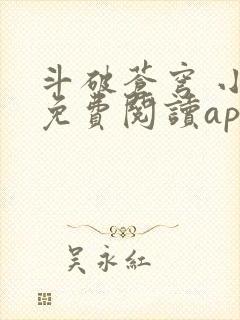 斗破苍穹 小
免費閱讀ap
吴永紅